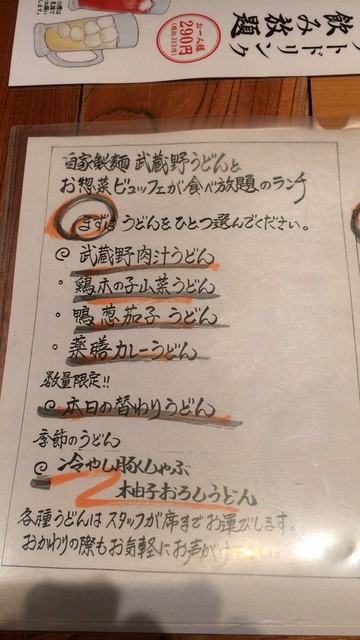 ドリンク
飲み放題
お一人様
290円
(税込313円)
自家製麺 武蔵野うどんと
お惣菜ビュッフェが食べ放題のランチ
まずはうどんをひとつ選んでください。
武蔵野肉汁うどん
・鶏木の子山菜うどん
・鴨葱茄子うどん
・薬膳カレーうどん
数量限定!!
本日の替わりうどん
季節のうどん
冷やし豚しゃぶ
柚子おろしうどん
各種うどんはスタッフが席までお運びします。
おかわりの際もお気軽にお声がけ